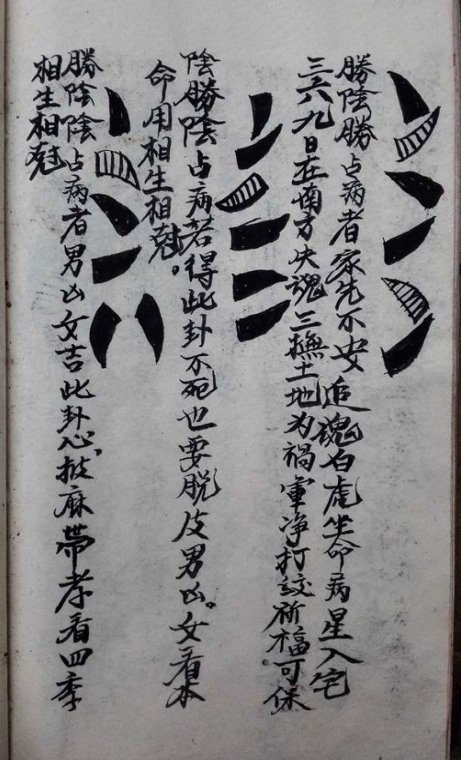 勝陰勝占病者家先不安追魂白虎坐命病星入宅
三六九日在南方失魂三撫土地为禍電净打䇬祈福可保
陰勝陰占病若得此卦不死也要脱皮男凶。女看本
命用相生相尅。
勝陰陰占病者男凶女吉此卦心披麻帶孝看四季
相生相尅